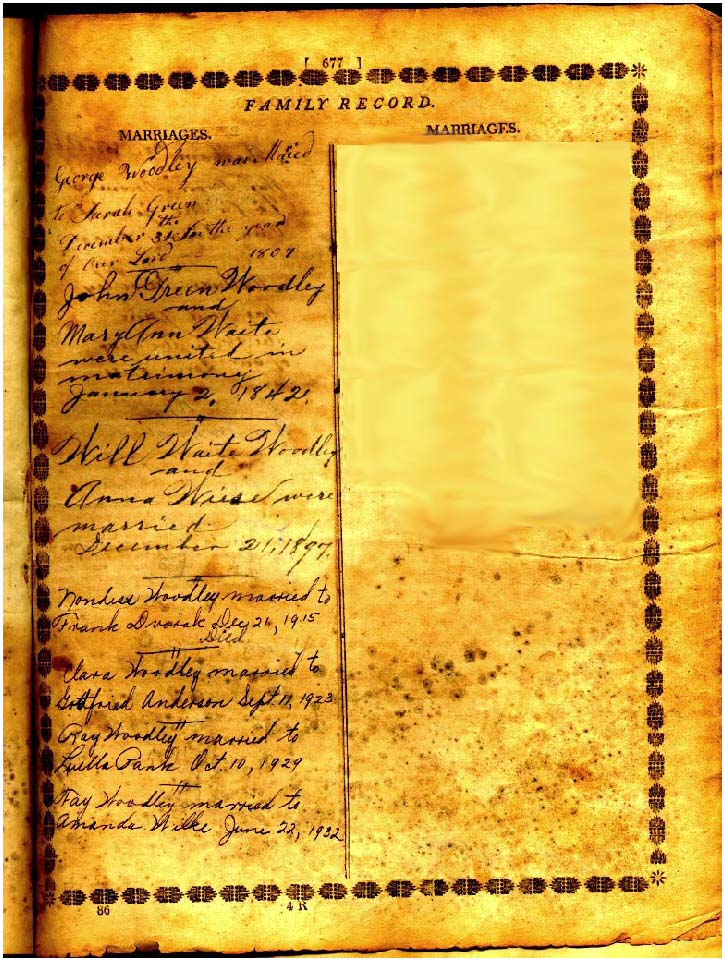 [ 677 ]
FAMILY RECORD.
MARRIAGES.
MARRIAGES.
George Woodley was
to Sarah Green
December 31st the year
of Our Lord 1807
John Green Woodley
and
Mary Ann Waite
were united in
matrimony
January 2, 1842.
Will Waite Woodley
and
Anna Wiese were
married
December 21, 1897.
Woodley married to
Frank Dvorak Dec 26, 1915
Died
Clara Woodley married to
Gottfried Anderson Sept 11, 1923
Ray Woodley married to
Luella Pank Oct. 10, 1929
Fay Woodley married to
Amanda Wilke June 22, 1932
86
4 R